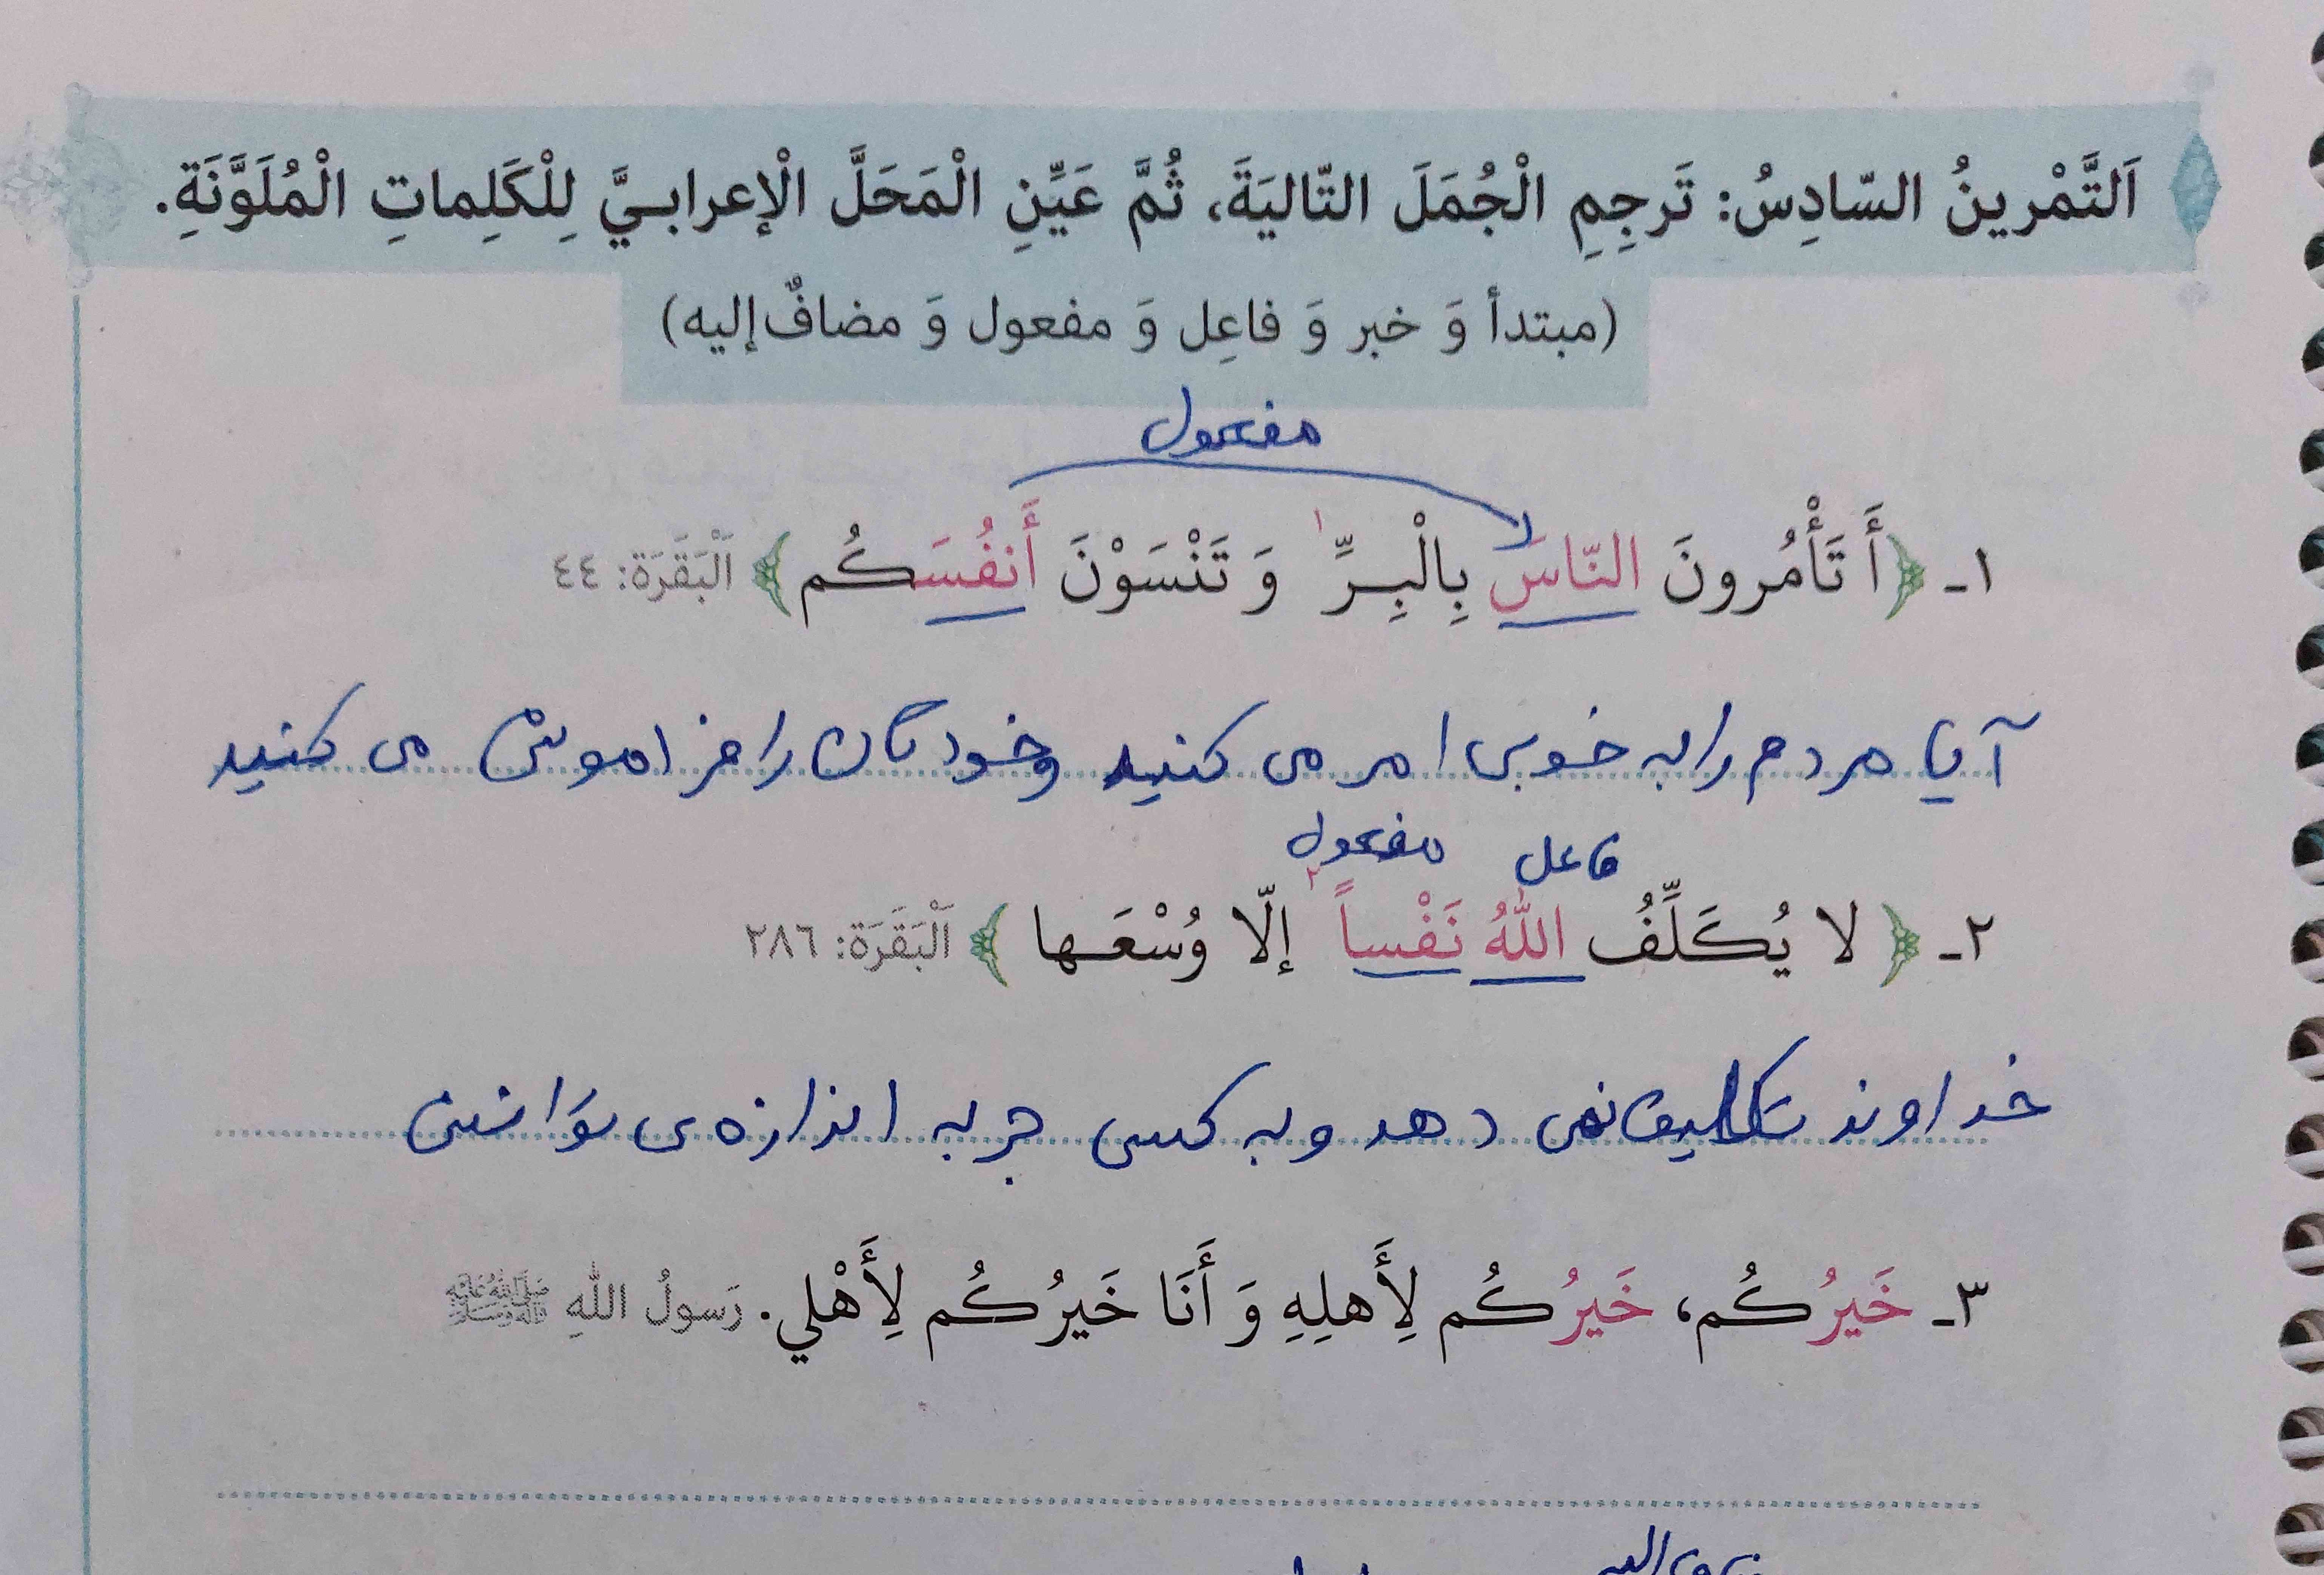 اَلتَّمْرينُ السّادِسُ: تَرجِمِ الْجُمَلَ التّاليَةَ، ثُمَّ عَيِّنِ الْمَحَلَّ الْإعرابيَّ لِلْكَلِماتِ الْمُلَوَّنَةِ.
(مبتدأ وَ خبر وَ فاعِل وَ مفعول وَ مضافٌ إليه)
مفعول
١ـ ﴿أَ تَأْمُرونَ النّاسَ بِالْبِرِّ١ وَ تَنْسَوْنَ أَنفُسَكُم﴾ اَلْبَقَرَة: ٤٤
آیا مردم را به خوبی امر می کنید و خودتان را فراموش می کنید
فاعل مفعول
٢ـ ﴿لا يُكَلِّفُ اللّٰهُ نَفْساً٢ إلّا وُسْعَها﴾ اَلْبَقَرَة: ٢٨٦
خداوند تکلیف نمی دهد و به کسی جز به اندازه ی توانش
٣ـ خَيرُكُم، خَيرُكُم لِأَهلِهِ وَ أَنَا خَيرُكُم لِأَهْلي. رَسولُ اللّٰهِ ﷺ